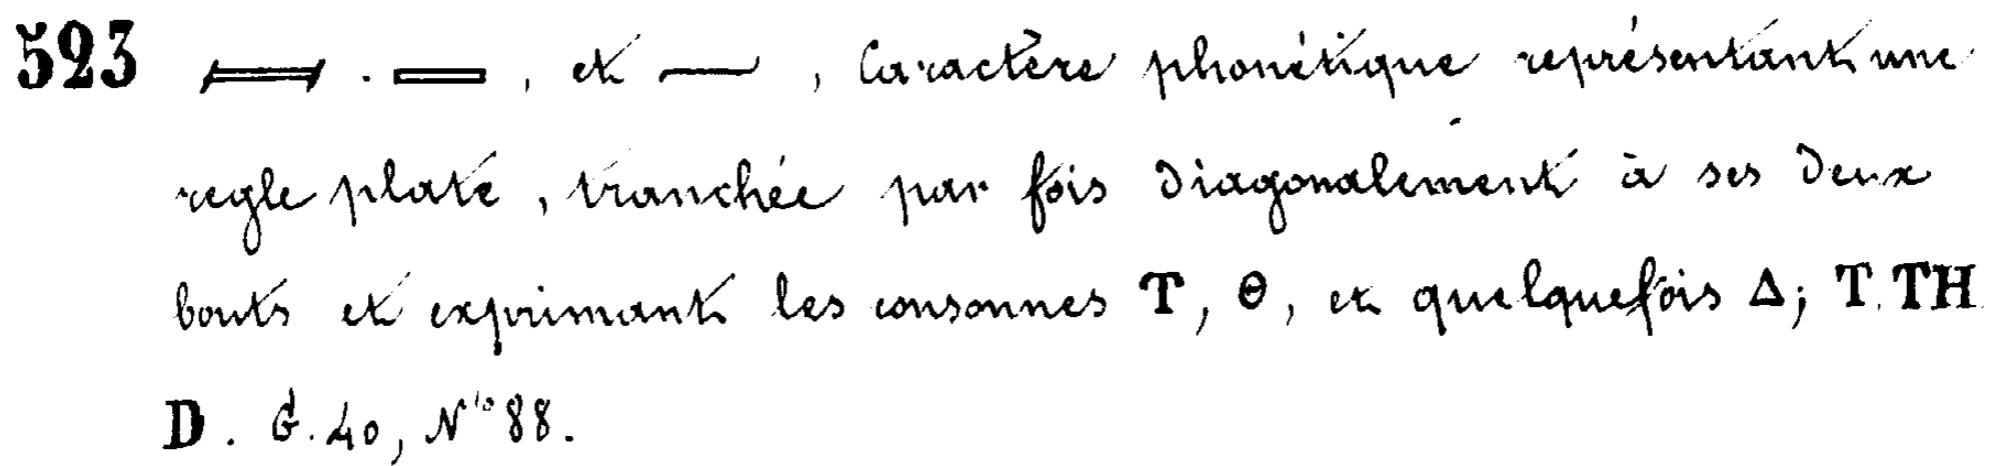 523 . , et , Caractère phonétique représentant une
regle plate, tranchée par fois diagonalement à ses deux
bouts et exprimant les consonnes T, Θ, et quelquefois Δ; T. TH
D. G. 40, N° 88.